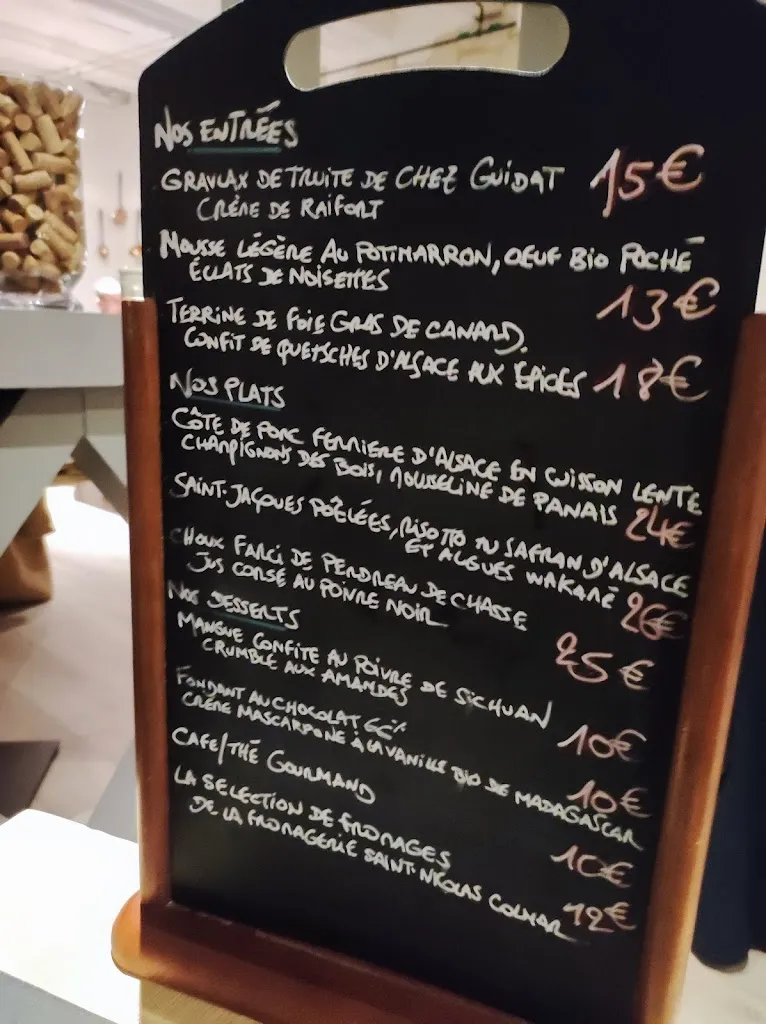 NOS ENTRÉES
GRAVLAX DE TRUITE DE CHEZ GUIDAT 15€
CRÈME DE RAIFORT
MOUSSE LÉGÈRE AU POTIMARRON, OEUF BIO POCHÉ
ÉCLATS DE NOISETTES 13€
TERRINE DE FOIE GRAS DE CANARD.
CONFIT DE QUETSCHES D'ALSACE AUX ÉPICES 18€
NOS PLATS
CÔTE DE PORC FERMIÈRE D'ALSACE EN CUISSON LENTE
CHAMPIGNONS DES BOIS, MOUSSELINE DE PANAIS 24€
SAINT-JACQUES POÊLÉES, RISOTTO AU SAFRAN D'ALSACE
ET ALGUES WAKAMÉ 26€
CHOUX FARCI DE PERDREAU DE CHASSE
JUS CORSÉ AU POIVRE NOIR 25€
NOS DESSERTS
MANGUE CONFITE AU POIVRE DE SICHUAN
CRUMBLE AUX AMANDES 10€
FONDANT AU CHOCOLAT 66%
CRÈME MASCARPONE À LA VANILLE BIO DE MADAGASCAR 10€
CAFE/THÉ GOURMAND 10€
LA SELECTION DE FROMAGES
DE LA FROMAGERIE SAINT-NICOLAS COLMAR 12€